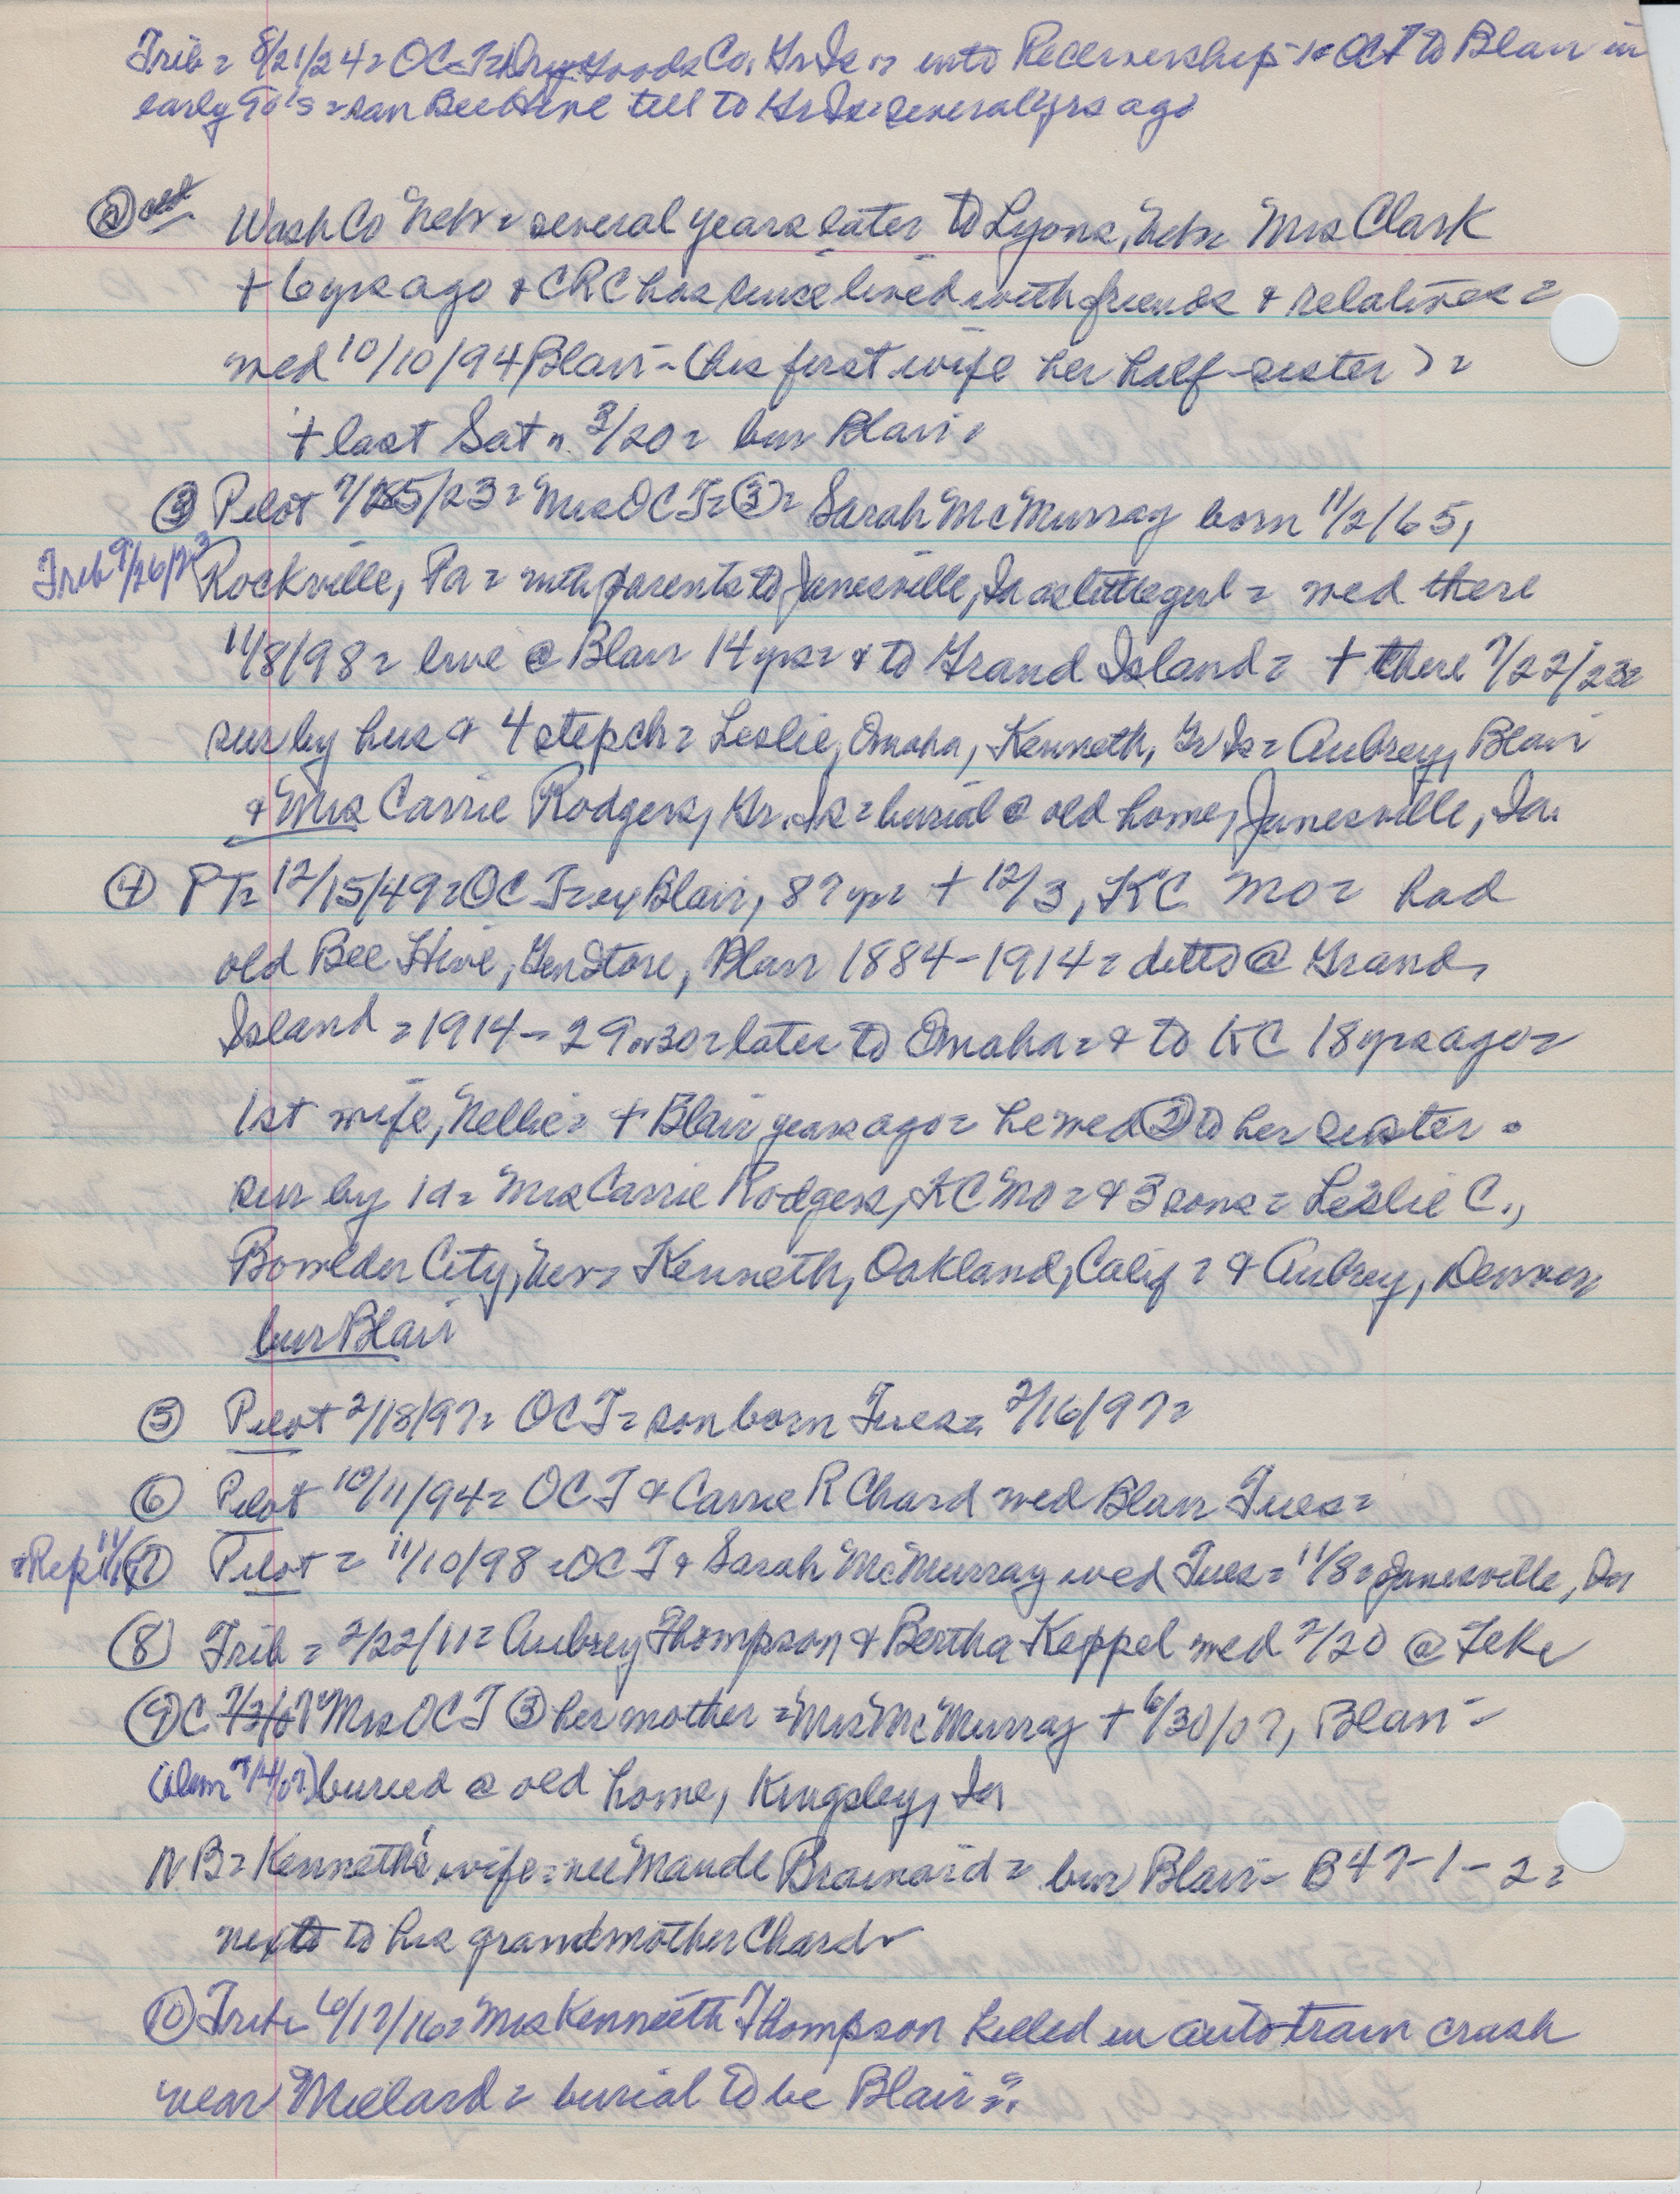 Trib = 8/21/24 = OC T = Dry Goods Co, Gr Is = into Receivership = OCT to Blair in
early 90's = ran Bee Hive till to Gr Is = several yrs ago
② Wash Co Nebr = several years later to Lyons, Nebr = Mrs Clark
+ 6 yrs ago & CRC has since lived with friends & relatives =
wed 10/10/94 Blair - (his first wife her half-sister) =
+ last Sat = 3/20 = bur Blair =
③ Pilot 7/25/23 = Mrs OCT = ③ = Sarah McMurray born 11/2/65,
Trib 9/26/23
Rockville, Pa = with parents to Janesville, Ia as little girl = wed there
11/8/98 = live @ Blair 14 yrs = & to Grand Island = + there 7/22/23 =
sur by hus & 4 stepch = Leslie, Omaha, Kenneth, Gr Is = Aubrey, Blair
& Mrs Carrie Rodgers, Gr. Is = burial @ old home, Janesville, Ia.
④ PT = 12/15/49 = OC T = ex Blair, 87 yr = + 12/3, KC Mo = had
old Bee Hive, Gen Store, Blair 1884-1914 = ditto @ Grand
Island = 1914 - 29 or 30 = later to Omaha = & to KC 18 yrs ago =
1st wife, Nellie = + Blair years ago = he wed ② to her sister =
sur by 1d = Mrs Carrie Rodgers, KC Mo = & 3 sons = Leslie C.,
Boulder City, Nev = Kenneth, Oakland, Calif = & Aubrey, Denver
bur Blair
⑤ Pilot 2/18/97 = OCT = son born Tues = 2/16/97 =
⑥ Pilot 10/11/94 = OCT & Carrie R Chard wed Blair Tues =
& Rep 11/
⑦ Pilot = 11/10/98 = OCT & Sarah McMurray wed Tues = 11/8 = Janesville, Ia
⑧ Trib = 2/22/11 = Aubrey Thompson & Bertha Keppel wed 2/20 @ Teke
⑨ C 7/3/07 Mrs OCT ③ her mother = Mrs McMurray + 6/30/07, Blair =
(Dem 7/4/07) buried @ old home, Kingsley, Ia
NB = Kenneth's wife = nee Maude Brainard = bur Blair - B 47-1-2 =
next to his grandmother Chard
⑩ Trib = 6/17/16 = Mrs Kenneth Thompson killed in auto-train crash
near Millard = burial to be Blair =